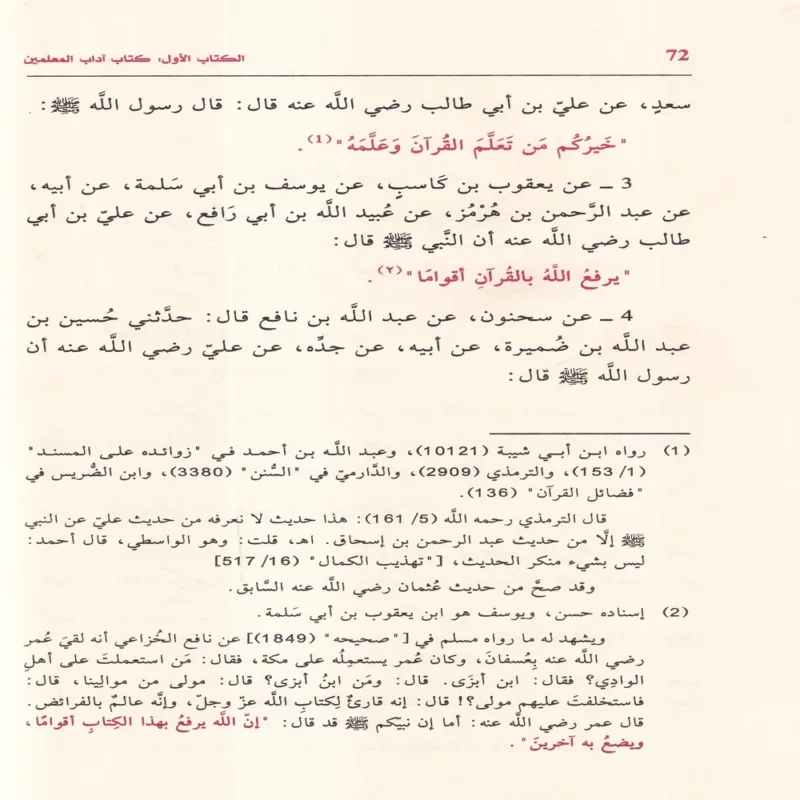 72
الكتاب الأول: كتاب آداب المعلمين
سعدٍ، عن عليّ بن أبي طالب رضي اللَّه عنه قال: قال رسول اللَّه ﷺ:
"خَيرُكُم مَن تَعَلَّمَ القُرآنَ وَعَلَّمَهُ"(1).
3 ـ عن يعقوب بن كَاسبٍ، عن يوسف بن أبي سَلمة، عن أبيه،
عن عبد الرَّحمن بن هُرْمُز، عن عُبيد اللَّه بن أبي رَافع، عن عليّ بن أبي
طالب رضي اللَّه عنه أن النَّبي ﷺ قال:
"يرفعُ اللَّهُ بالقُرآنِ أقوامًا"(٢).
4 ـ عن سحنون، عن عبد اللَّه بن نافع قال: حدَّثني حُسين بن
عبد اللَّه بن ضُميرة، عن أبيه، عن جدِّه، عن عليّ رضي اللَّه عنه أن
رسول اللَّه ﷺ قال:
(1) رواه ابن أبي شيبة (10121)، وعبد اللَّه بن أحمد في "زوائده على المسند"
(1/ 153)، والترمذي (2909)، والدَّارميّ في "السُّنن" (3380)، وابن الضُّريس في
"فضائل القرآن" (136).
قال الترمذي رحمه اللَّه (5/ 161): هذا حديث لا نعرفه من حديث عليّ عن النبي
ﷺ إلَّا من حديث عبد الرحمن بن إسحاق. اهـ، قلت: وهو الواسطي، قال أحمد:
ليس بشيء منكر الحديث، ["تهذيب الكمال" (16/ 517]
وقد صحَّ من حديث عُثمان رضي اللَّه عنه السَّابق.
(2) إسناده حسن، ويوسف هو ابن يعقوب بن أبي سَلمة.
ويشهد له ما رواه مسلم في ["صحيحه" (1849)] عن نافع الخُزاعي أنه لقيَ عُمر
رضي اللَّه عنه بِعُسفانَ، وكان عُمر يستعمِلُه على مكة، فقال: مَن استعملتَ على أهلِ
الوادِي؟ فقال: ابن أبزَى. قال: ومَن ابنُ أبزى؟ قال: مولى من موالِينا، قال:
فاستخلفتَ عليهم مولى؟! قال: إنه قارئٌ لِكتابِ اللَّه عزّ وجلّ، وإنَّه عالمٌ بالفرائض.
قال عمر رضي اللَّه عنه: أما إن نبيّكم ﷺ قد قال: "إنّ اللَّه يرفعُ بهذا الكِتابِ أقوامًا،
ويضعُ به آخرينَ".